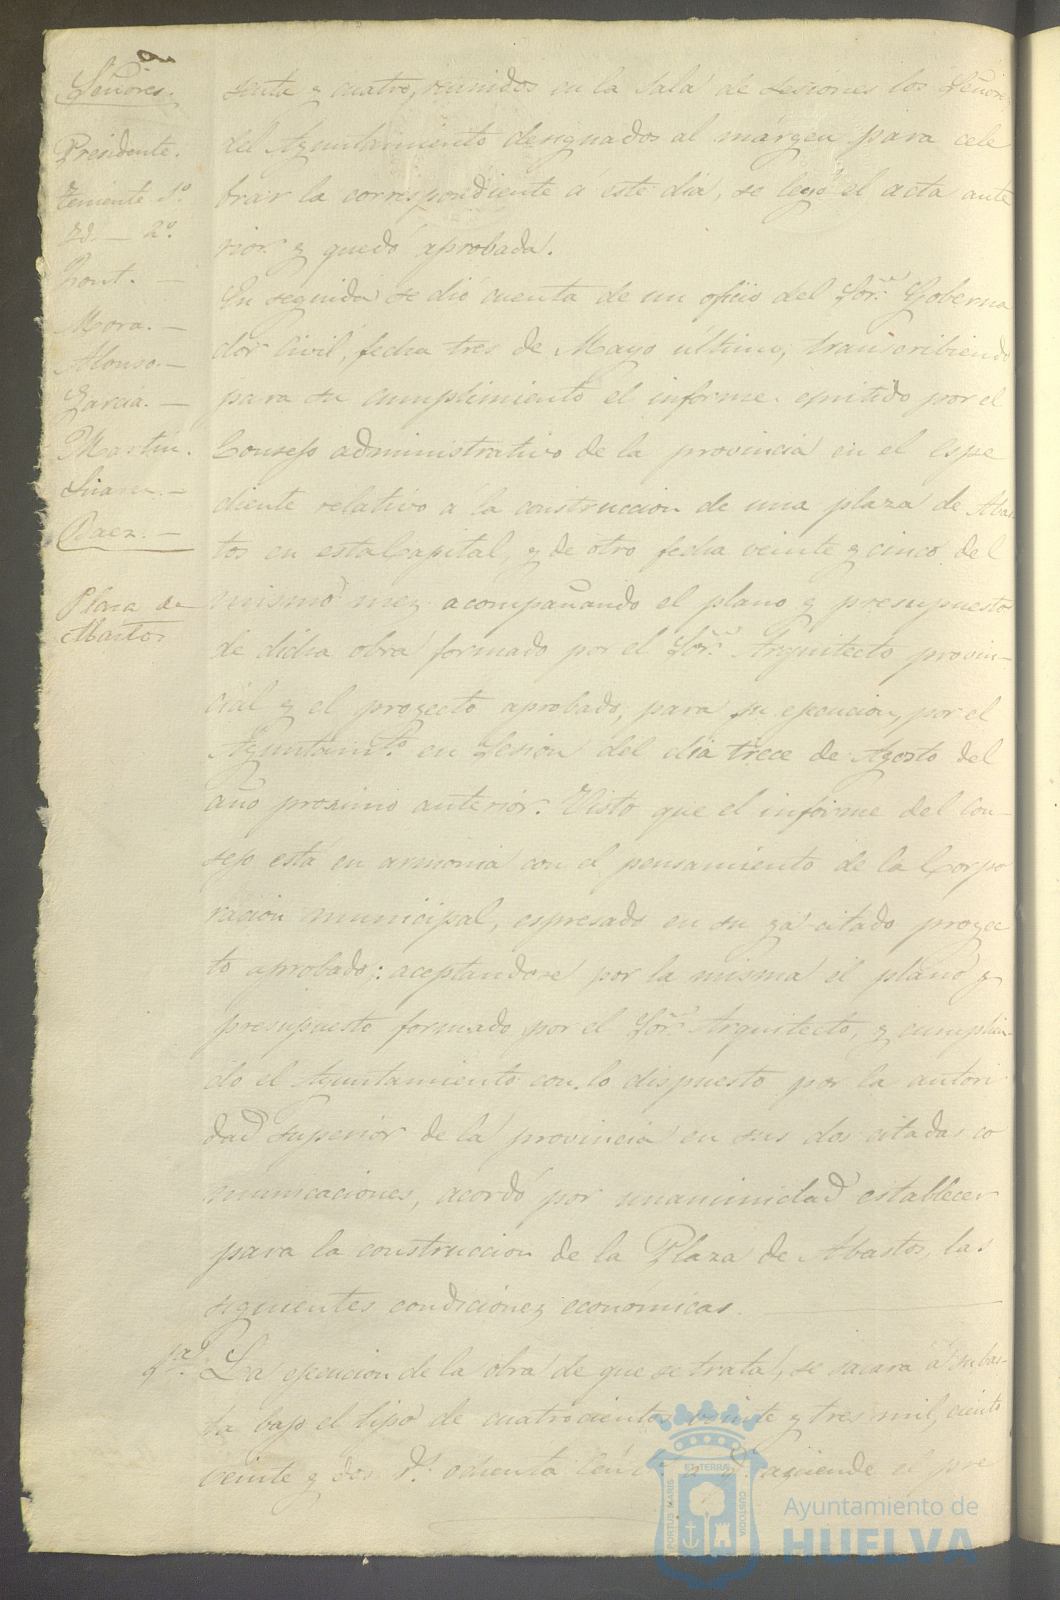 Señores.
Presidente.
Teniente 1º
Yd. — 2º.
Mora. —
Alonso. —
Garcia. —
Martin.
Suarez. —
Baez. —
Plaza de
Abastos
senta y cuatro, reunidos en la Sala de sesiones los Señores
del Ayuntamiento designados al márgen para cele
brar la correspondiente a este dia, se leyó el acta ante
rior y quedó aprobada.
En seguida se dió cuenta de un oficio del Sor. Goberna
dor Civil, fecha tres de Mayo último, transcribiendo
para su cumplimiento el informe emitido por el
Consejo administrativo de la provincia en el espe
diente relativo á la construccion de una plaza de Abas
tos en esta Capital, y de otro fecha veinte y cinco del
mismo mez acompañando el plano y presupuesto
de dicha obra formado por el Sor. Arquitecto provin—
cial y el proyecto aprobado, para su ejecucion, por el
Ayuntamto. en sesion del dia trece de Agosto del
año prosimo anterior. Visto que el informe del Con—
sejo está en armonia con el pensamiento de la Corpo
racion municipal, espresado en su ya citado proyec
to aprobado: aceptandose por la misma el plano y
presupuesto formado por el Sor. Arquitecto, y cumplien—
do el Ayuntamiento con lo dispuesto por la autori
dad superior de la provincia en sus dos citadas co
municaciones, acordó por unanimidad establecer
para la construccion de la Plaza de Abastos, las
siguientes condicionez economicas.
1ª. La ejecucion de la obra de que se trata, se sacará á subas—
ta bajo el tipo de cuatrocientos veinte y tres mil, ciento
veinte y dos rs. ochenta cents. á qe. asciende el pre
PORTUS MARIS ET TERRAE CUSTODIA
Ayuntamiento de
HUELVA